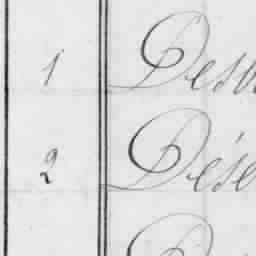 1 Desb
2 Dése
D